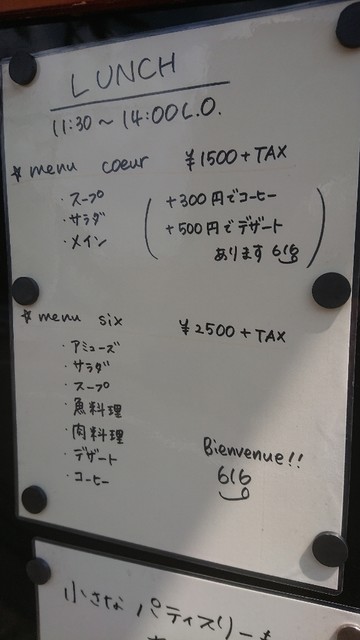 LUNCH
11:30～14:00 L.O.
☆menu coeur ¥1500+TAX
・スープ
・サラダ
・メイン
(+300円でコーヒー
+500円でデザート
あります 616)
☆menu six ¥2500+TAX
・アミューズ
・サラダ
・スープ
・魚料理
・肉料理
・デザート
・コーヒー
Bienvenue!!
616
小さなパティスリーも